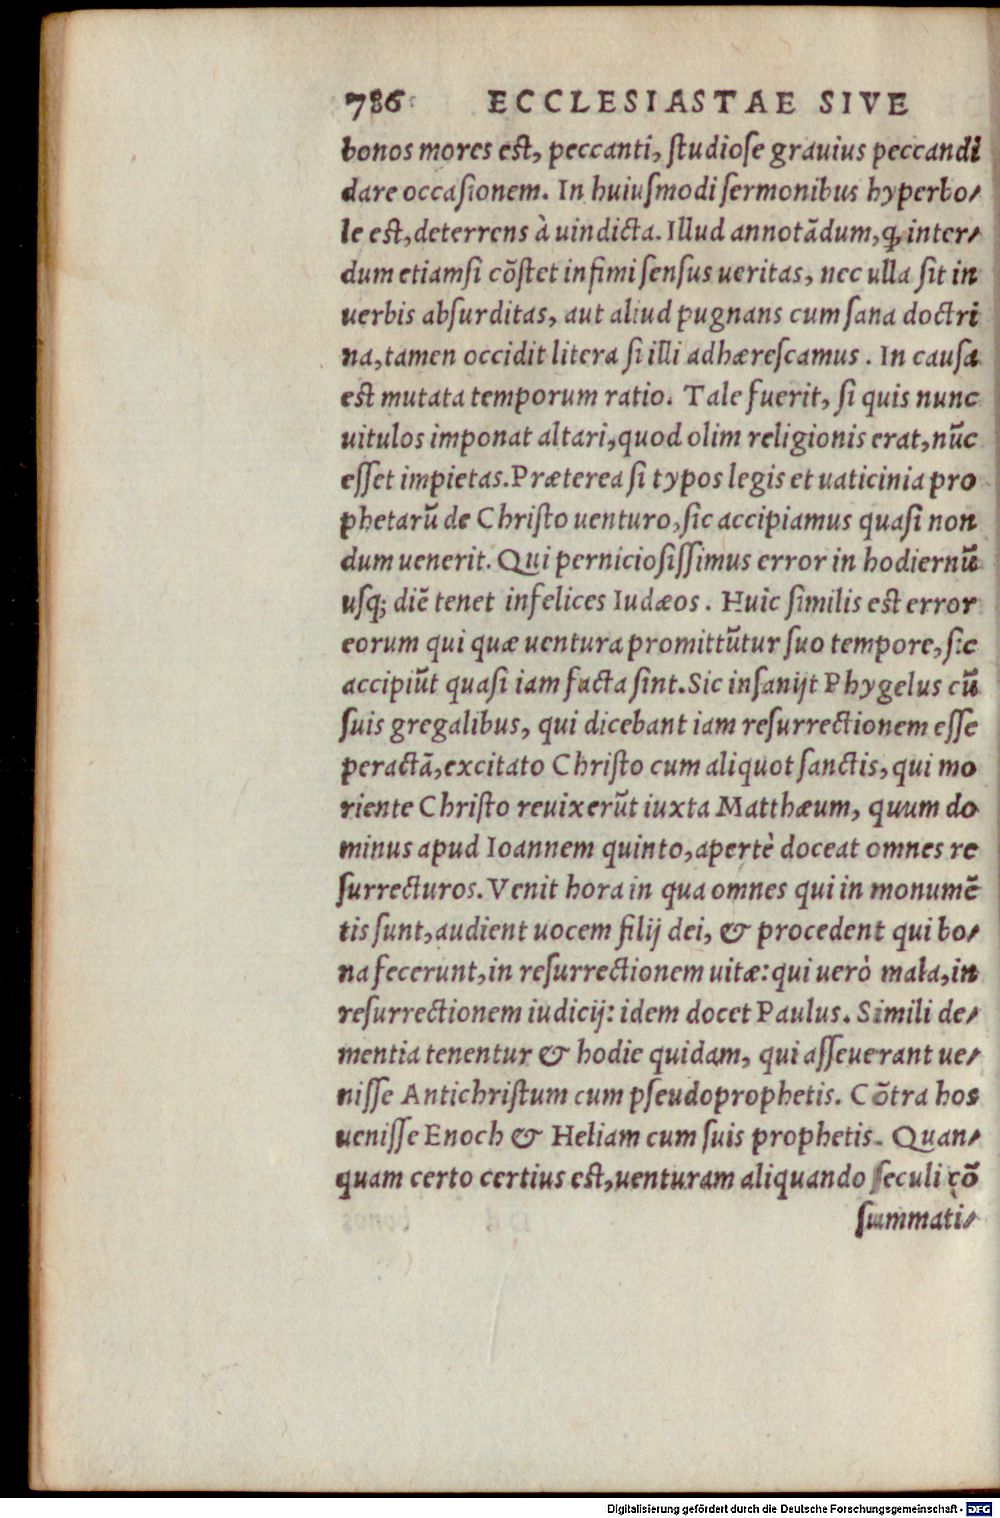 786 ECCLESIASTAE SIVE
bonos mores est, peccanti, studiose grauius peccandi
dare occasionem. In huiusmodi sermonibus hyperbo-
le est, deterrens à uindicta. Illud annotādum, ꝙ, inter-
dum etiamsi cōstet infimi sensus ueritas, nec ulla sit in
uerbis absurditas, aut aliud pugnans cum sana doctri
na, tamen occidit litera si illi adhærescamus. In causa
est mutata temporum ratio. Tale fuerit, si quis nunc
uitulos imponat altari, quod olim religionis erat, nūc
esset impietas. Præterea si typos legis et uaticinia pro
phetarū de Christo uenturo, sic accipiamus quasi non
dum uenerit. Qui perniciosissimus error in hodiernū
usq; diē tenet infelices Iudæos. Huic similis est error
eorum qui quæ uentura promittūtur suo tempore, sic
accipiūt quasi iam facta sint. Sic insanijt Phygelus cū
suis gregalibus, qui dicebant iam resurrectionem esse
peractā, excitato Christo cum aliquot sanctis, qui mo
riente Christo reuixerūt iuxta Matthæum, quum do
minus apud Ioannem quinto, apertè doceat omnes re
surrecturos. Venit hora in qua omnes qui in monumē
tis sunt, audient uocem filij dei, & procedent qui bo-
na fecerunt, in resurrectionem uitæ: qui uerò mala, in
resurrectionem iudicij: idem docet Paulus. Simili de-
mentia tenentur & hodie quidam, qui asseuerant ue-
nisse Antichristum cum pseudoprophetis. Cōtra hos
uenisse Enoch & Heliam cum suis prophetis. Quan-
quam certo certius est, uenturam aliquando seculi cō
summati-
Digitalisierung gefördert durch die Deutsche Forschungsgemeinschaft - DFG